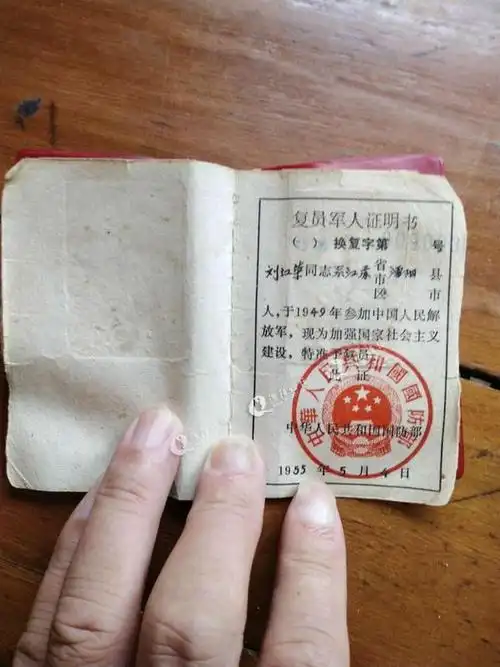 复员军人证明书
( ) 换复字第 号
刘红荣同志系江苏省市区溧阳县市
人,于1949年参加中国人民解
放军,现为加强国家社会主义
建设,特准予复员
此证
中华人民共和国国防部
中华人民共和国国防部
1955年5月4日